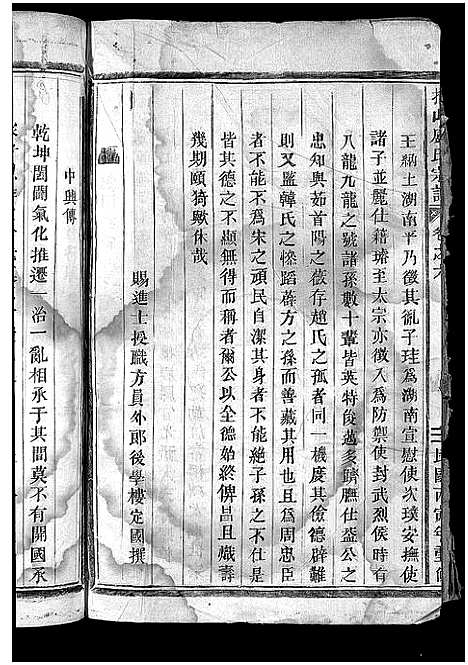 王納土湖南平乃徵其胤子珪為湖南宣慰使次璞安撫使
諸子並麗仕籍臻至太宗亦徵入為防禦使封武烈侯時有
八龍九龍之號諸孫數十輩皆英特俊邁多躋膴仕盍公之
忠知與茹首陽之薇存趙氏之孤者同一機度其儉德辟難
則又監韓氏之慘蹈蕣方之孫而善藏其用也且為周忠臣
者不能不為宋之頑民自潔其身者不能絶子孫之不仕此
皆其德之不顯無得而稱者爾公以全德始終俾昌且熾壽
幾期頤猗歟休哉
賜進士授職方員外郎後學樓定國撰
中興傳
乾坤闔闢氣化推遷一治一亂相承于其間莫不有開國承